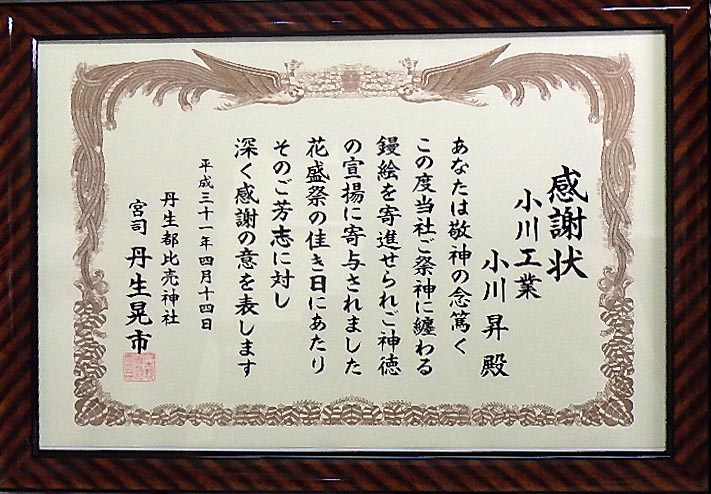 感謝状
小川工業
小川昇殿
あなたは敬神の念篤く
この度当社ご祭神に纏わる
鏝絵を寄進せられご神徳
の宣揚に寄与されました
花盛祭の佳き日にあたり
そのご芳志に対し
深く感謝の意を表します
平成三十一年四月十四日
丹生都比売神社
宮司 丹生晃市